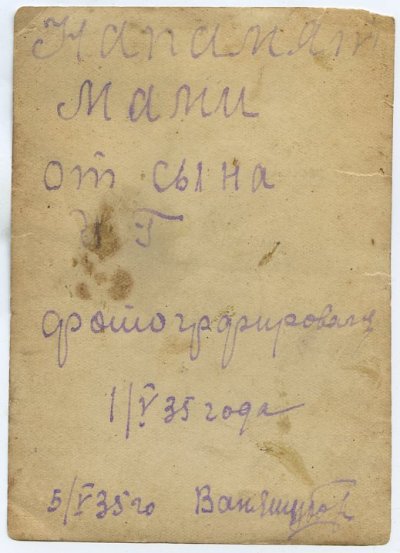 На память
Мами
от сына
И Г
фотографировался
1/V 35 года
5/V 35 го